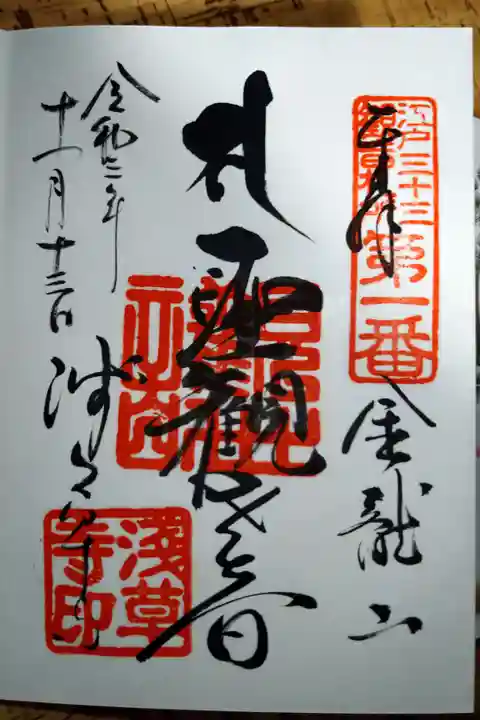 奉拝
江戸三十三
観音札所
第一番
金龍山
聖観世音
浅草寺
令和二年
十一月十三日
浅草
寺印